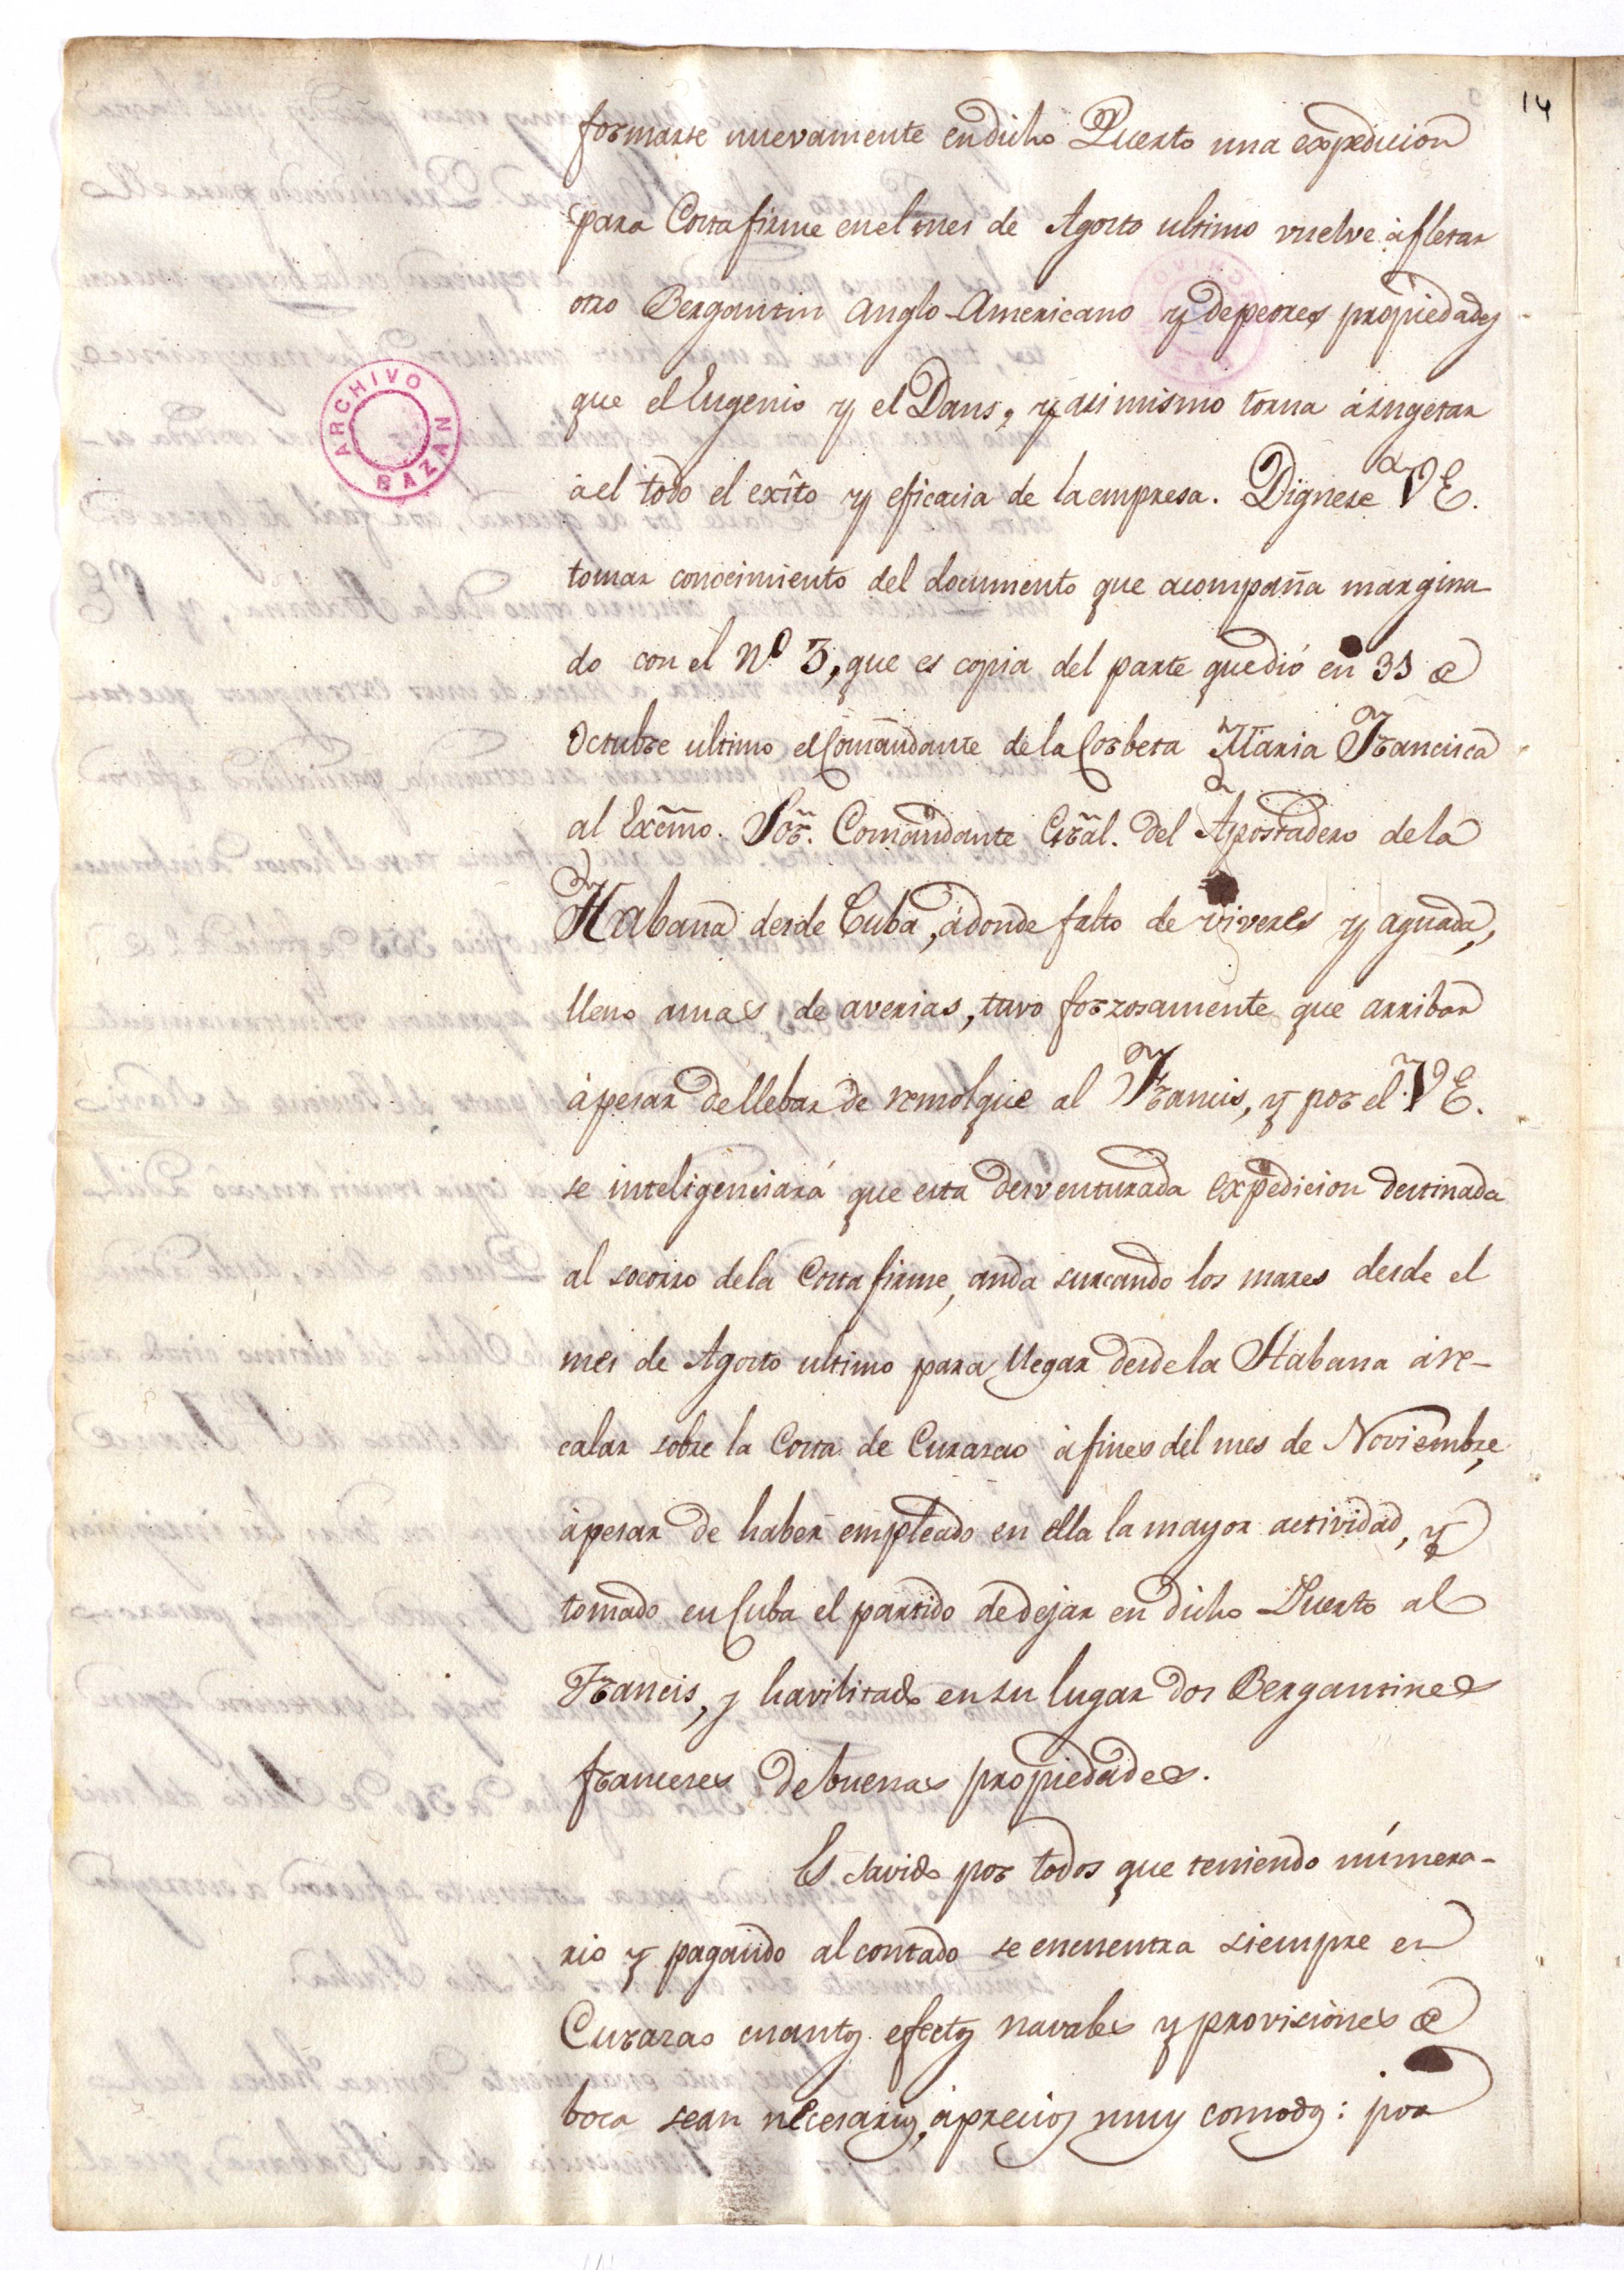 14
formarse nuevamente en dicho Puerto una expedicion
para Costa firme en el mes de Agosto ultimo vuelve à fletar
otro Bergantin Anglo-Americano y de peores propiedades
que el Eugenio y el Dans, y asi mismo torna à sugetar
à el todo el exîto y eficacia de la empresa. Dignese V E.
tomar conocimiento del documento que acompaña margina
do con el Nº 3, que es copia del parte que dió en 31 de
Octubre ultimo el Comandante de la Corbeta Maria Francisca
al Excmo. Sor. Comandante Gral. del Apostadero de la
Habana desde Cuba, adonde falto de viveres y aguada,
lleno amas de averias, tuvo forzosamente que arribar
àpesar de llebar de remolque al Francis, y por el V E.
se inteligenciará que esta desventurada expedicion destinada
al socorro de la Costa firme, anda surcando los mares desde el
mes de Agosto ultimo para llegar desde la Habana à re-
calar sobre la Costa de Curacao à fines del mes de Noviembre,
àpesar de haber empleado en ella la mayor actividad, y
tomado en Cuba el partido de dejar en dicho Puerto al
Francis, y havilitado en su lugar dos Bergantines
franceses de buenas propiedades.
Es savido por todos que teniendo númera-
rio y pagando al contado se encuentra siempre en
Curazao cuantos efectos navales y provisiones de
boca sean necesarios, à precios muy comodos: por
ARCHIVO
BAZAN